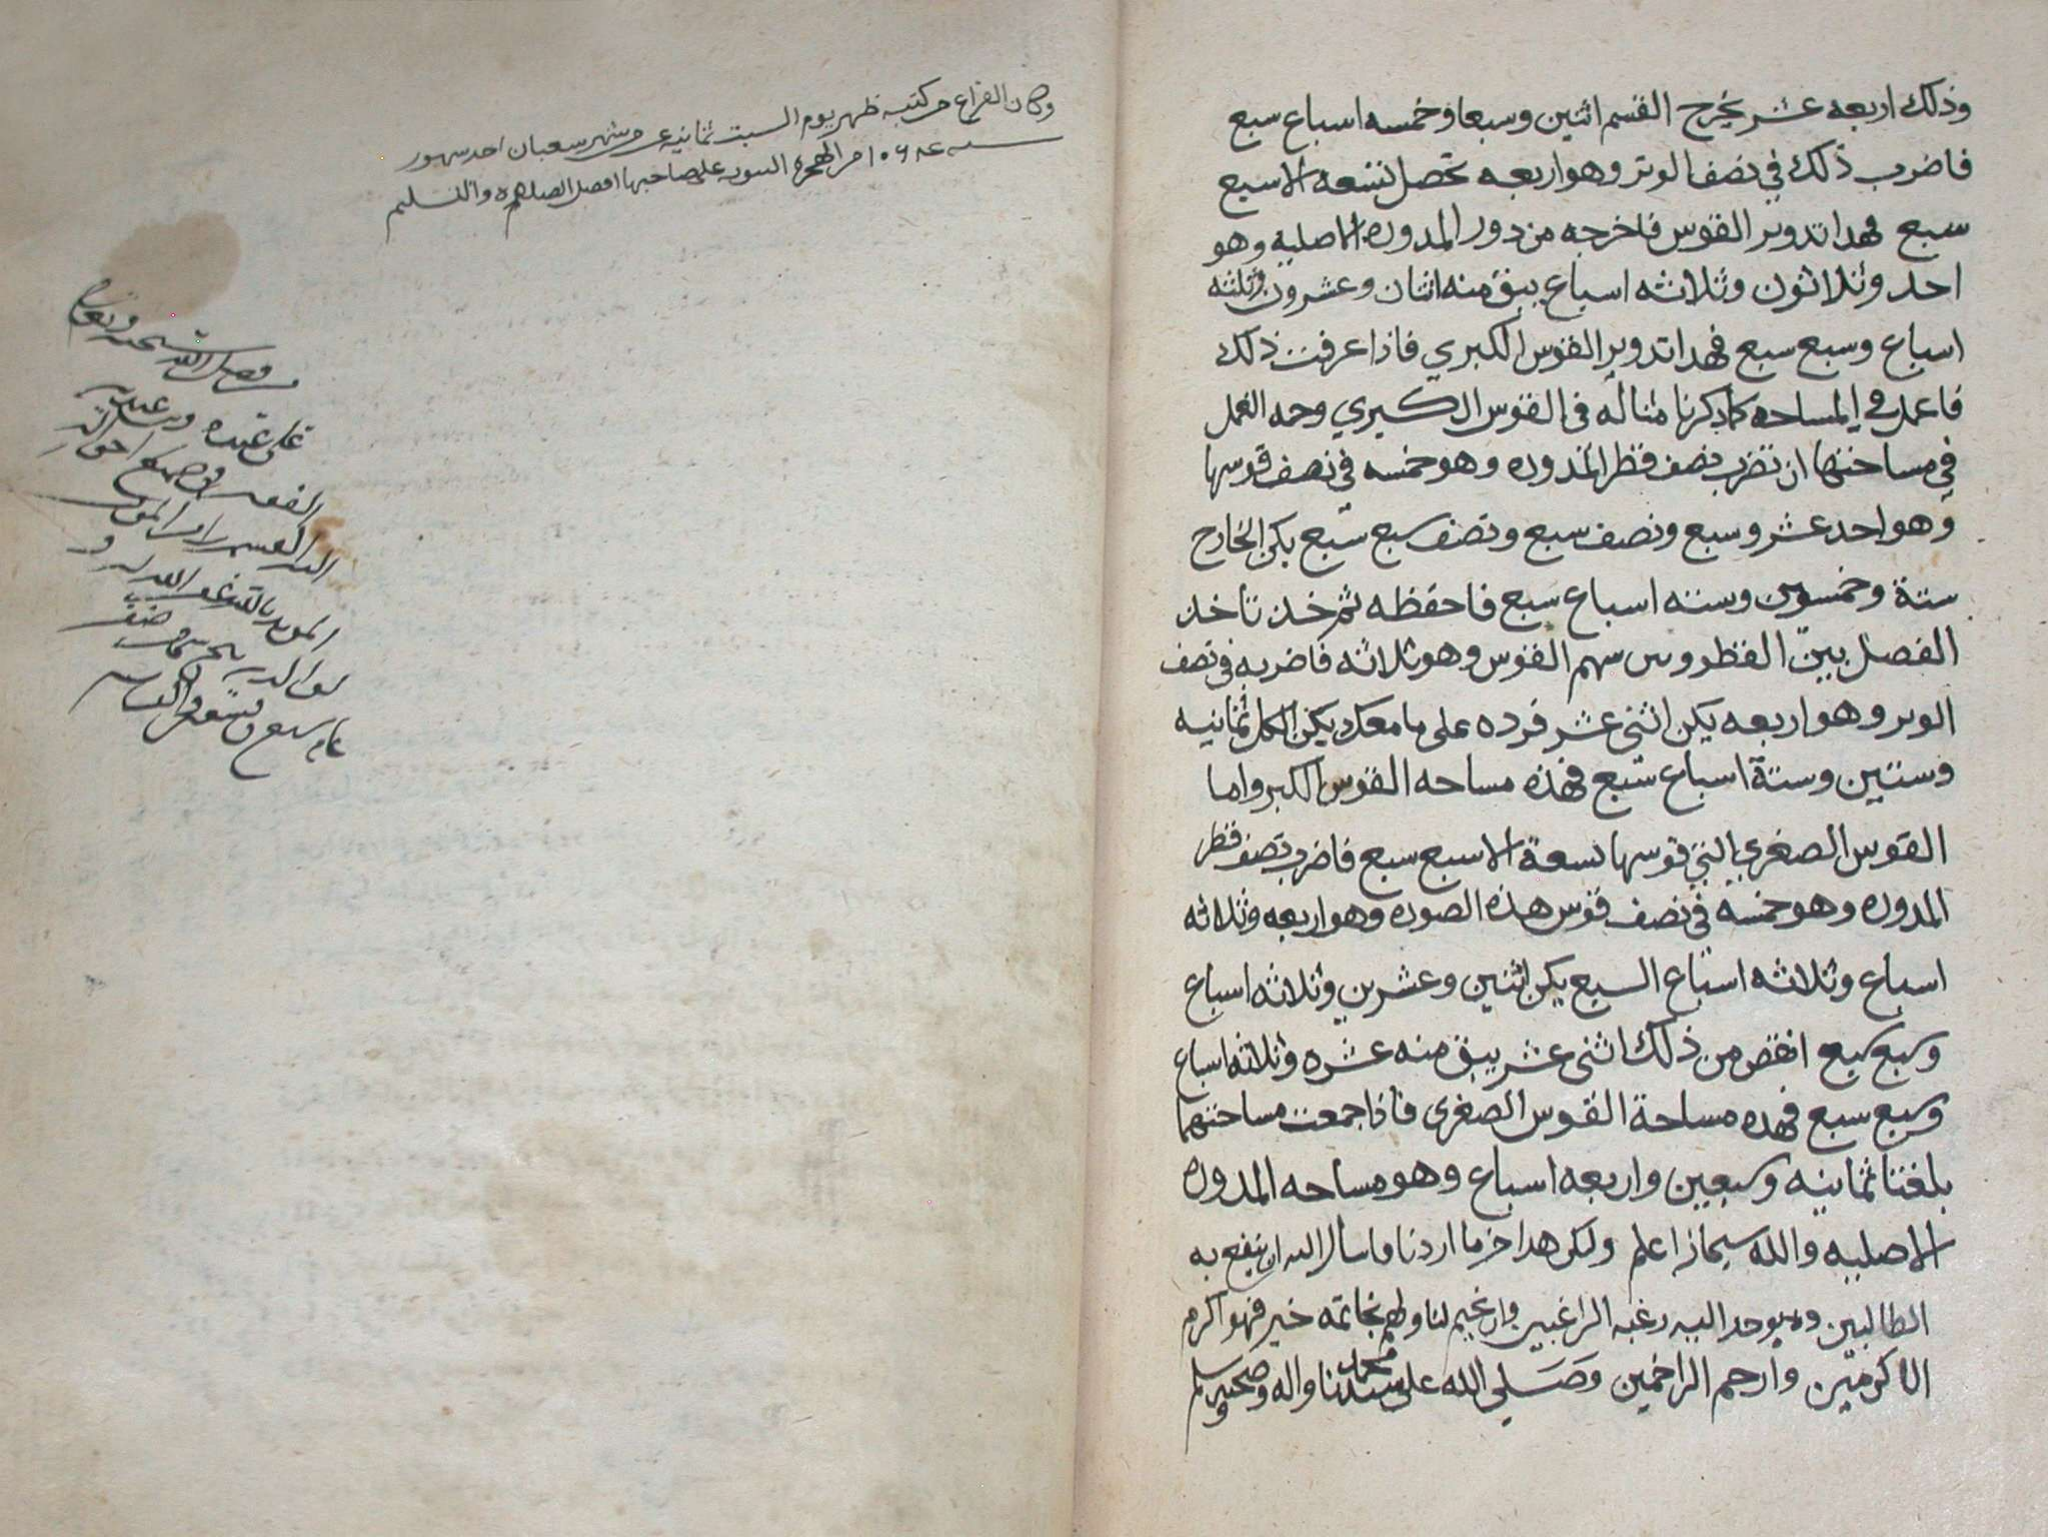 وذلك اربعه عشر يخرج القسم اثنين وسبعا وخمسه اسباع سبع
فاضرب ذلك في نصف الوتر وهو اربعه تحصل تسعه الا سبع
سبع فهدا تدوير القوس فاخرجه من دور المدوره الاصليه وهو
احد وثلاثون وثلاثه اسباع يبق منه اثنان وعشرون وثلثه
اسباع وسبع سبع فهدا تدوير القوس الكبري فاذا عرفت ذلك
فاعمل في المساحه كما ذكرنا مثاله في القوس الكبيري وجه العمل
في مساحتها ان تضرب نصف قطر المدوره وهو خمسه في نصف قوسها
وهو احد عشر وسبع ونصف سبع ونصف سبع سبع يكن الخارج
ستة وخمسون وسته اسباع سبع فاحفظه ثم خذ تاخذ
الفصل بين القطر وبين سهم القوس وهو ثلاثه فاضربه في نصف
الوتر وهو اربعه يكن اثنى عشر فرده على ما معك يكن الكل ثمانيه
وستين وستة اسباع سبع فهذه مساحه القوس الكبر واما
القوس الصغري التي قوسها تسعة الا سبع سبع فاضرب نصف قطر
المدوره وهو خمسه في نصف قوس هذه الصوره وهو اربعه وثلاثه
اسباع وثلاثه اسباع السبع يكن اثنين وعشرين وثلاثه اسباع
وسبع سبع انقص من ذلك اثنى عشر يبق منه عشره وثلاثه اسباع
وسبع سبع فهده مساحة القوس الصغرى فاذا جمعت مساحتهما
بلغتا ثمانيه وسبعين واربعه اسباع وهو مساحه المدوره
الاصليه والله سبحانه اعلم وليكن هدا اخر ما اردنا واسال الله ان ينفع به
الطالبين رغبه الراغبين وان يختم لنا ولهم بخاتمه خير فهو اكرم
الاكرمين وارحم الراحمين وصلي الله على سيدنا محمد واله وصحبه وسلم
وكان الفراغ من كتبه ظهر يوم السبت ثمانيه عشر شهر شعبان احد شهور
سنه من الهجره النبويه على صاحبها افضل الصلاه والتسليم
من فضل الله سبحنه وتعالى
على عبده
الفقير